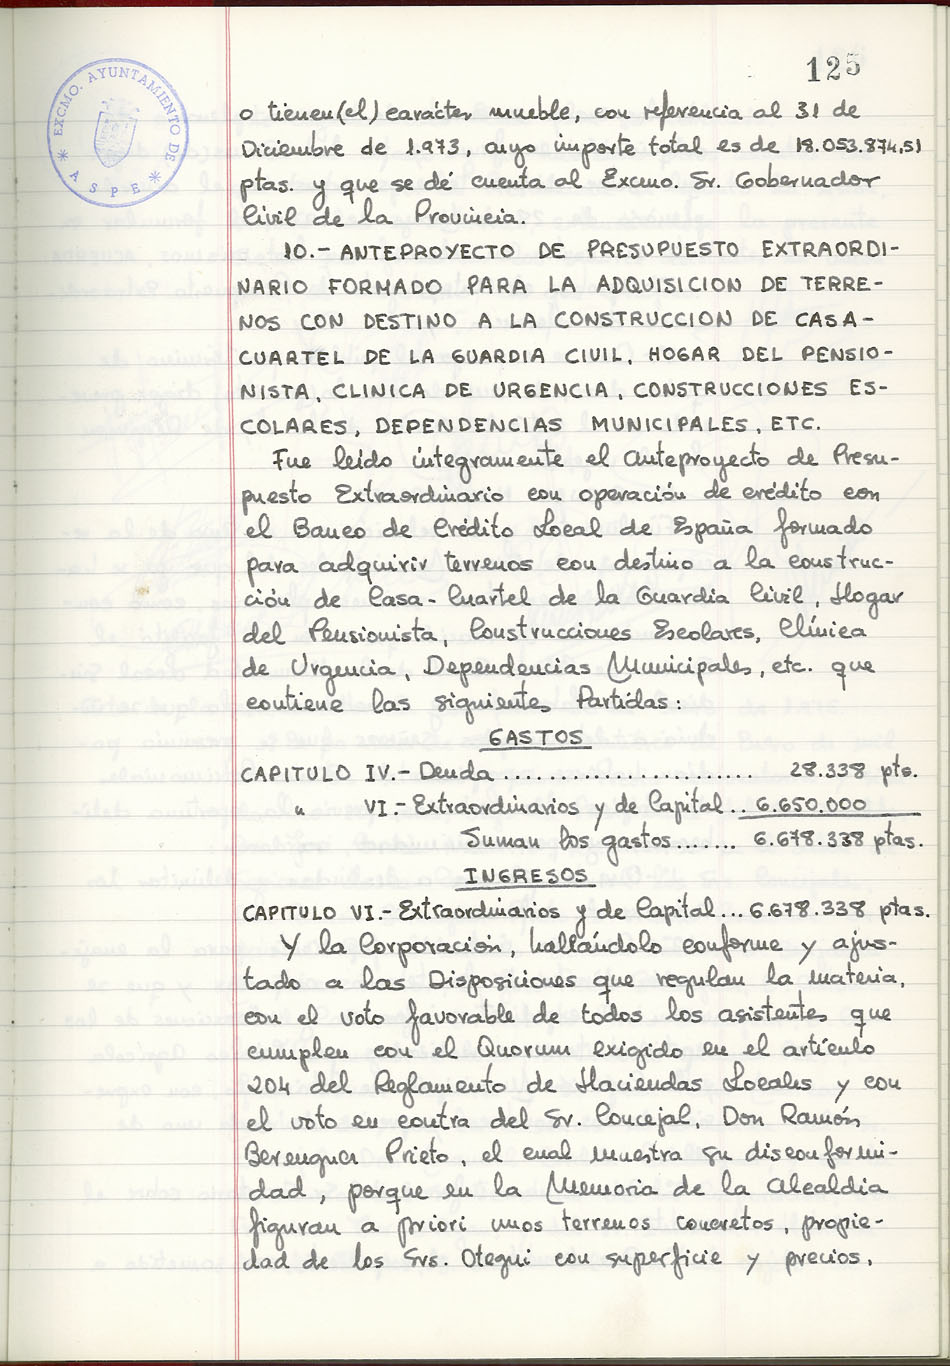 125
EXCMO. AYUNTAMIENTO DE
* ASPE *
o tienen (el) carácter mueble, con referencia al 31 de
Diciembre de 1.973, cuyo importe total es de 18.053.874,51
ptas. y que se dé cuenta al Excmo. Sr. Gobernador
Civil de la Provincia.
10.- ANTEPROYECTO DE PRESUPUESTO EXTRAORDI-
NARIO FORMADO PARA LA ADQUISICION DE TERRE-
NOS CON DESTINO A LA CONSTRUCCION DE CASA-
CUARTEL DE LA GUARDIA CIVIL, HOGAR DEL PENSIO-
NISTA, CLINICA DE URGENCIA, CONSTRUCCIONES ES-
COLARES, DEPENDENCIAS MUNICIPALES, ETC.
Fue leído íntegramente el Anteproyecto de Presu-
puesto Extraordinario con operación de crédito con
el Banco de Crédito Local de España formado
para adquirir terrenos con destino a la construc-
ción de Casa-Cuartel de la Guardia Civil, Hogar
del Pensionista, Construcciones Escolares, Clínica
de Urgencia, Dependencias Municipales, etc. que
contiene las siguientes Partidas:
GASTOS
CAPITULO IV.- Deuda ........................ 28.338 pts.
" VI.- Extraordinarios y de Capital .. 6.650.000
Suman los gastos....... 6.678.338 ptas.
INGRESOS
CAPITULO VI.- Extraordinarios y de Capital ... 6.678.338 ptas.
Y la Corporación, hallándolo conforme y ajus-
tado a las Disposiciones que regulan la materia,
con el voto favorable de todos los asistentes que
cumplen con el Quorum exigido en el artículo
204 del Reglamento de Haciendas Locales y con
el voto en contra del Sr. Concejal, Don Ramón
Berenguer Prieto, el cual muestra su disconformi-
dad, porque en la Memoria de la Alcaldía
figuran a priori unos terrenos concretos, propie-
dad de los Srs. Otegui con superficie y precios,